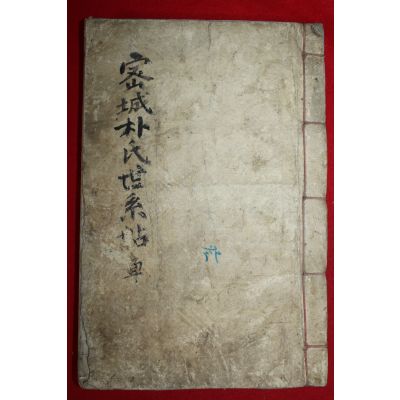 密城朴氏世系帖 單